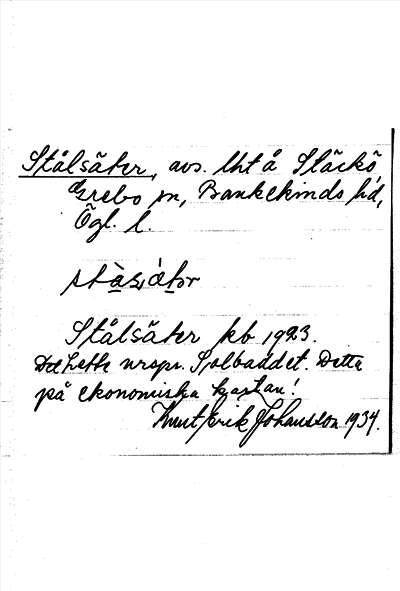 Stålsäter, avs. lht å Släckö,
Grebo sn, Bankekinds hd,
Ögl. l.
stà̱s,ätər
Stålsäter kb 1923.
Det hette urspr. Solbaddet. Detta
på ekonomiska kartan!
Knut Erik Johansson 1934.